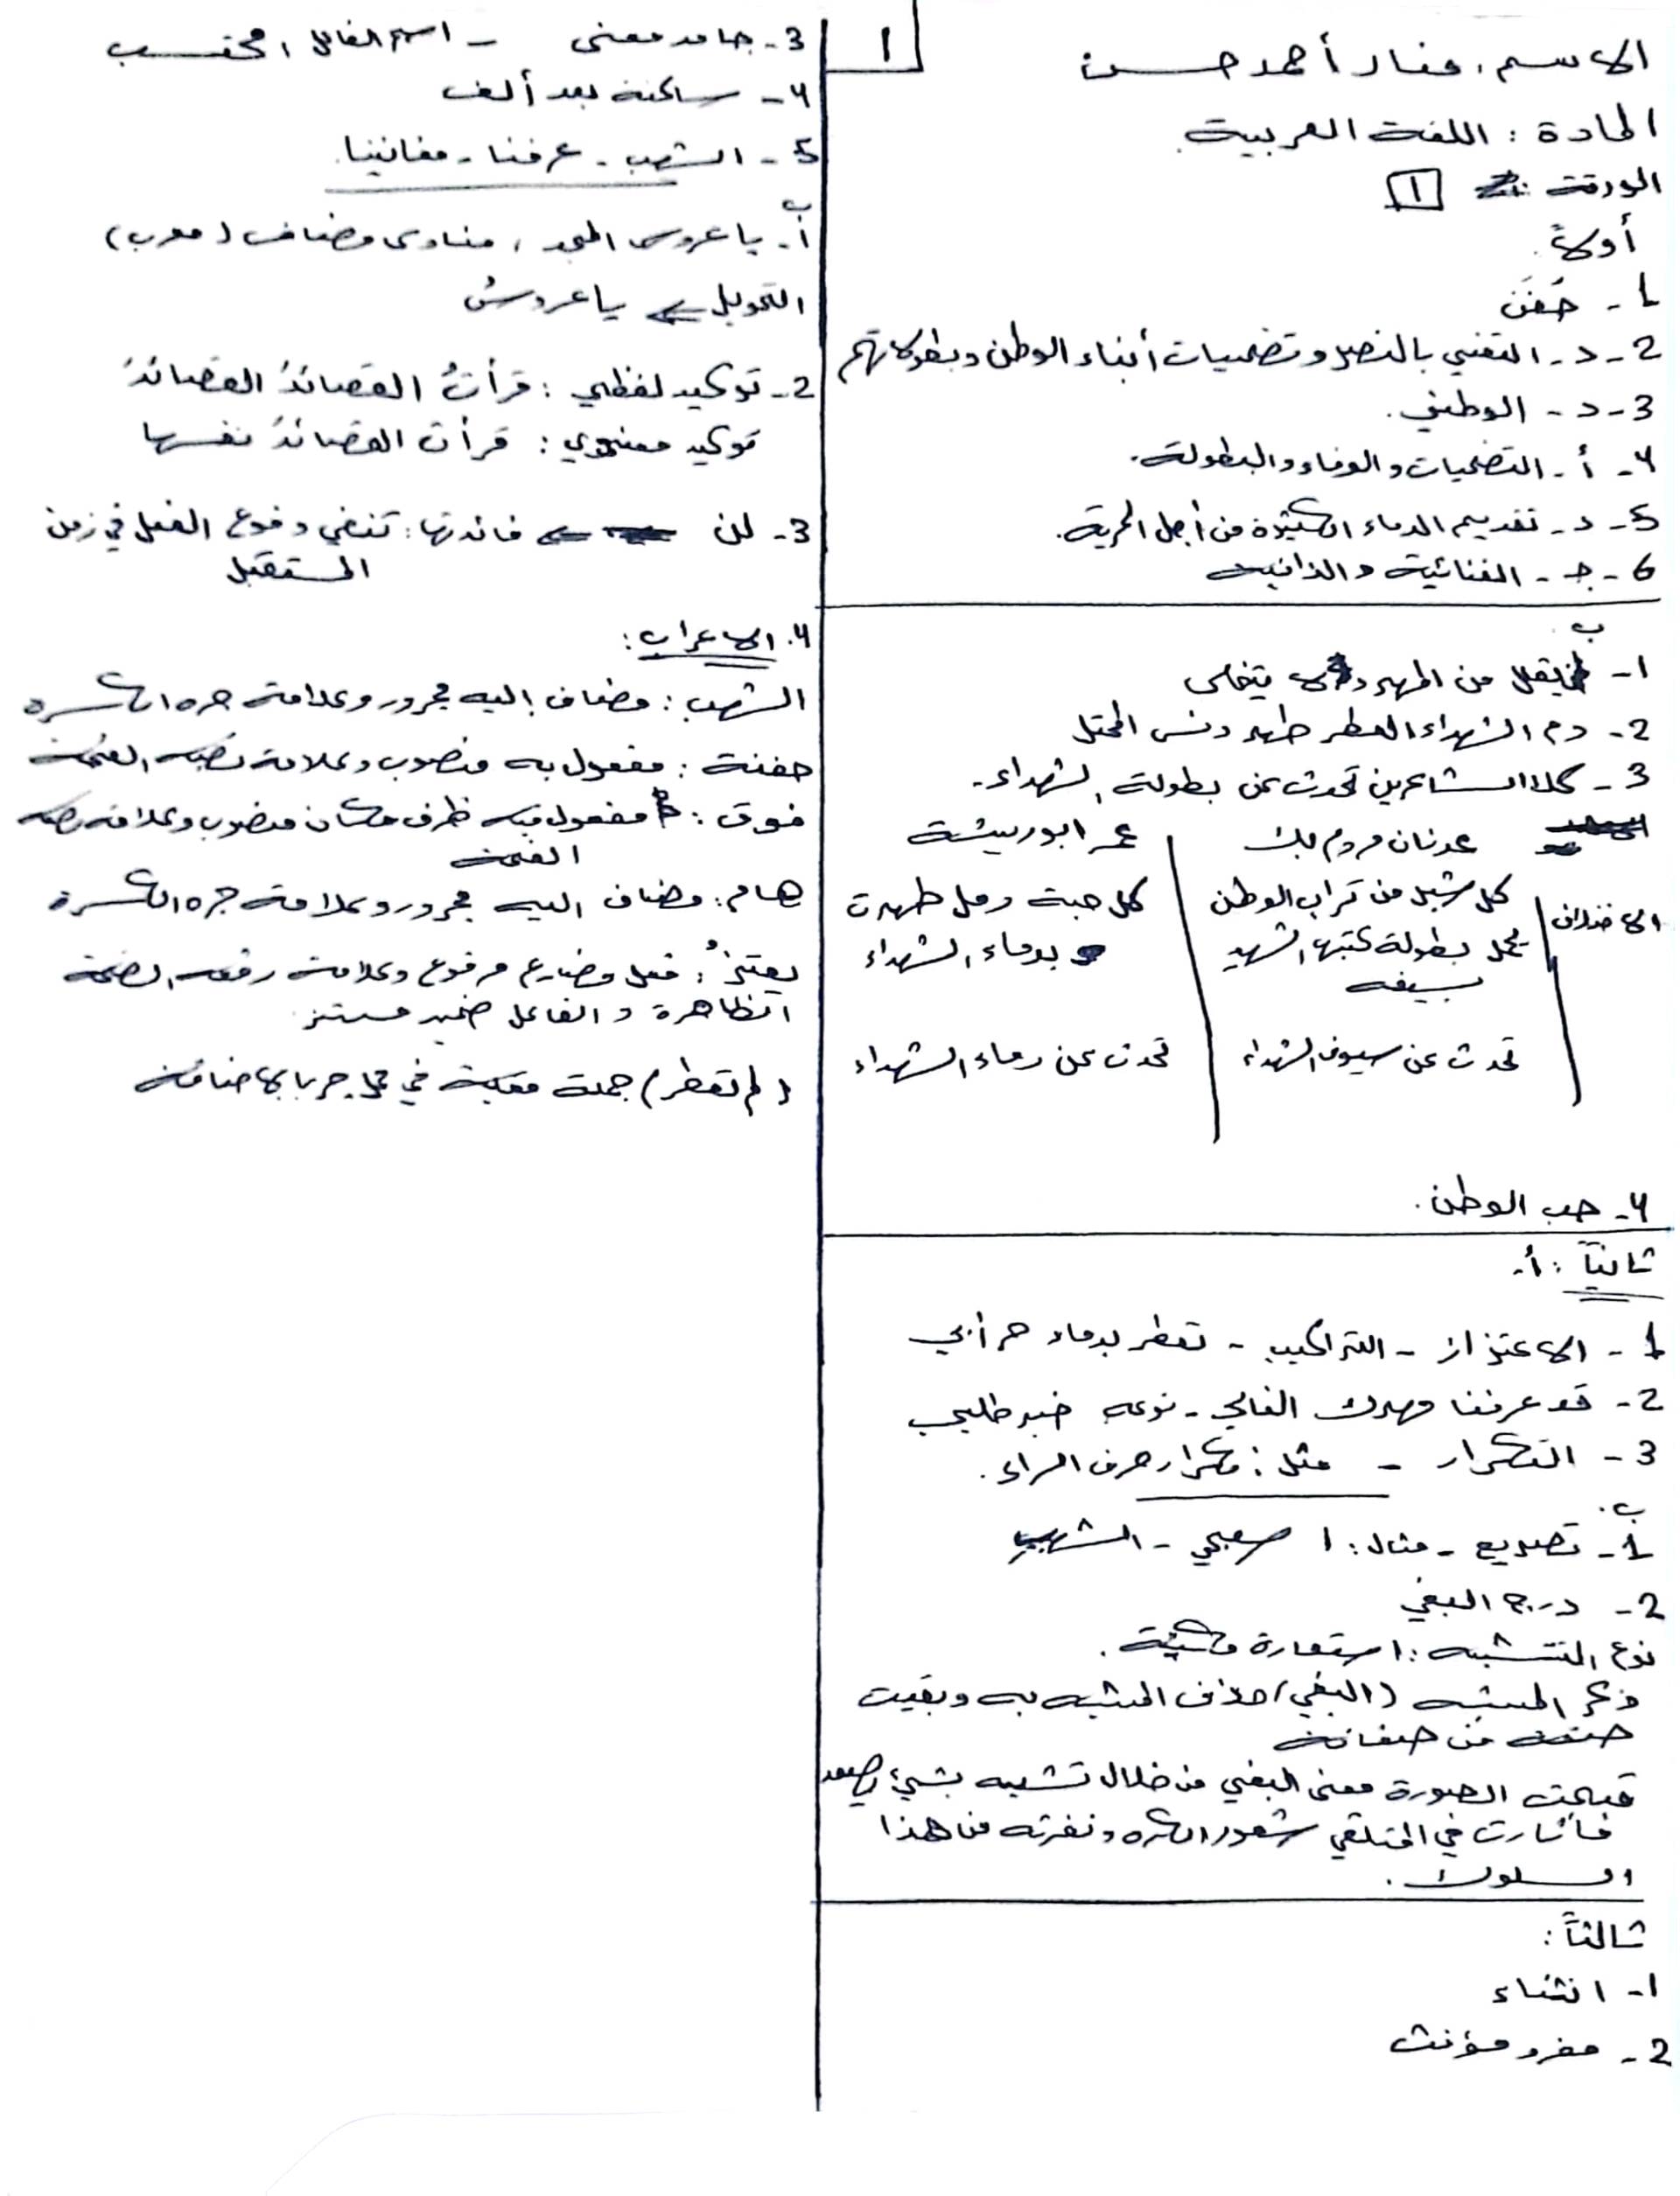 1
الاسم: منار أحمد حسن
المادة: اللغة العربية.
الورقة 1
أولاً.
1- حَفَنَ
2- د- التغني بالنصر وتضحيات أبناء الوطن وبطولاتهم
3- د- الوطني.
4- أ- التضحيات والوفاء والبطولة.
5- د- تقديم الدماء الكثيرة من أجل الحرية.
6- جـ - الغنائية والذاتية
ب.
1- يقلل من المهر ولا يتخلى
2- دم الشهداء العطر طهر دنس المحتل
3- كلا الشاعرين تحدث عن بطولة الشهداء.
عدنان مردم بك
عمر ابو ريشة
الاختلاف
كل شبل من تراب الوطن
كل حبة رمل طهرت
يحمل بطولة كتبها الشهيد
بدماء الشهداء
بسيفه
تحدث عن سيوف الشهداء
تحدث عن دماء الشهداء
4- حب الوطن.
ثانياً: أ-
1- الاعتزاز - التراكيب - تعطر بدماء حر أبي
2- قد عرفنا مهرك الغالي - نوعه خبر طلبي
3- التكرار - مثل: تكرار حرف الراء.
ب.
1- تصريع - مثال: اسحبي - الشهبِ
2- درج البغي
نوع التشبيه: استعارة مكنية.
ذكر المشبه (البغي) حذف المشبه به وبقيت
صفة من صفاته
قبحت الصورة معنى البغي من خلال تشبيه بشيء يصعد
فأثارت في المتلقي شعور الكره ونفرته من هذا
السلوك.
ثالثاً:
1- انثناء
2- مفرد مؤنث
3- جامد معنى - اسم الفاعل: محتسب
4- ساكنة بعد ألف
5- الشهب - عرفنا - مغانينا.
ب
أ- يا عروس المجد: منادى مضاف (معرب)
التحويل ← يا عروسُ
2- توكيد لفظي: قرأتُ القصائدَ القصائدَ
توكيد معنوي: قرأت القصائدَ نفسها
3- لن ← فائدتها: تنفي وقوع الفعل في زمن
المستقبل
4. الاعراب:
الشهب: مضاف إليه مجرور وعلامة جره الكسرة
حفنة: مفعول به منصوب وعلامة نصبه الفتحة
فوق: مفعول فيه ظرف مكان منصوب وعلامة نصبه
الفتحة
هام: مضاف اليه مجرور وعلامة جره الكسرة
يعتزُ: فعل مضارع مرفوع وعلامة رفعه الضمة
الظاهرة والفاعل ضمير مستتر.
(لم تعطر) جملة فعلية في محل جر بالاضافة